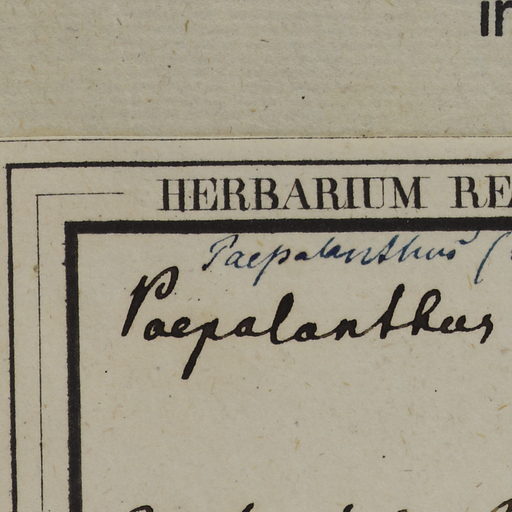 HERBARIUM RE
Paepalanthus (
Paepalanthus